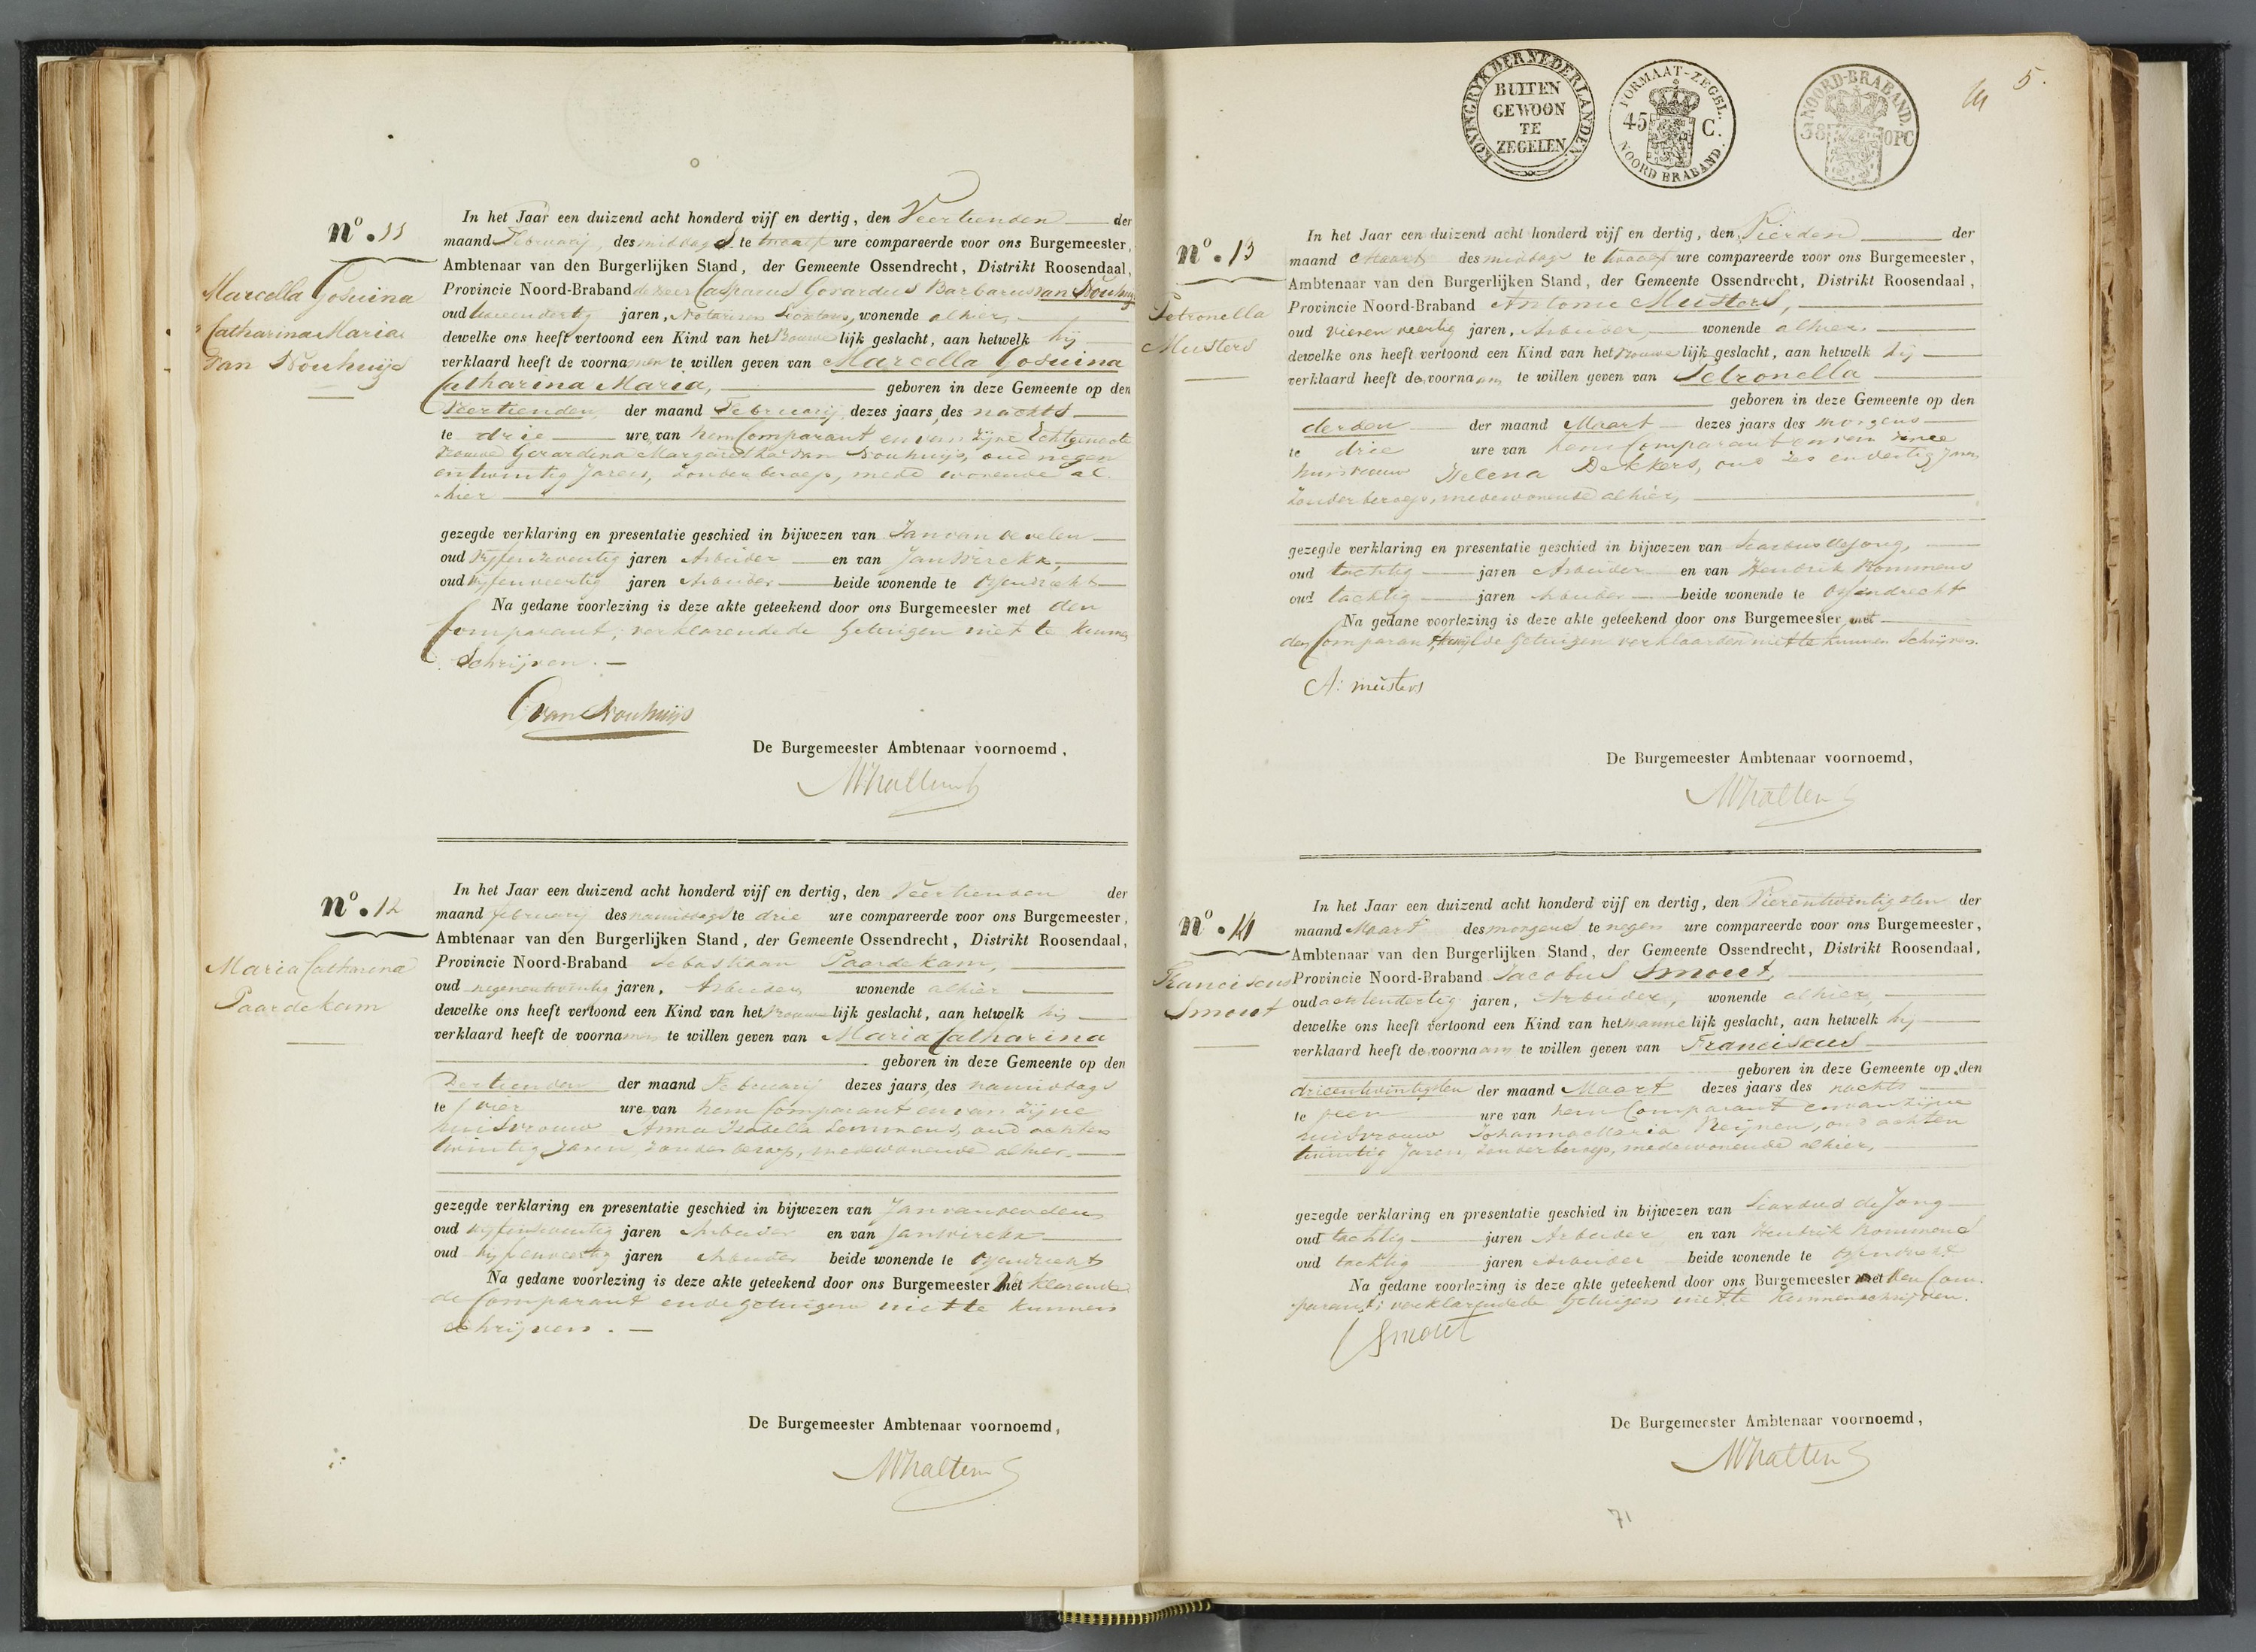 nº. 11
Marcella Gosuina
Catharina Maria
van Nouhuijs
In het Jaar een duizend acht honderd vijf en dertig, den Veertienden der
maand Februarij, des middags te twaalf ure compareerde voor ons Burgemeester,
Ambtenaar van den Burgerlijken Stand, der Gemeente Ossendrecht, Distrikt Roosendaal,
Provincie Noord-Braband de Heer Casparus Gerardus Barbarus van Nouhuijs
oud tweeendertig jaren, Notarissen wonende alhier,
dewelke ons heeft vertoond een Kind van het vrouwelijk geslacht, aan hetwelk hij
verklaard heeft de voornamen te willen geven van Marcella Gosuina
Catharina Maria, geboren in deze Gemeente op den
Veertienden der maand Februarij dezes jaars, des nachts
te drie ure van hem Comparant en van zijne Echtgenoote
vrouwe Gerardina Margaretha van Nouhuijs, oud negen
en twintig Jaren, zonder beroep, mede wonende al
hier
gezegde verklaring en presentatie geschied in bijwezen van Jan van
oud vijfenzeventig jaren Arbeider en van Jan Wirckx,
oud vijfenveertig jaren Arbeider beide wonende te Ossendrecht
Na gedane voorlezing is deze akte geteekend door ons Burgemeester met den
Comparant; verklarende de getuigen niet te kunnen
Schrijven.
G van Nouhuijs
De Burgemeester Ambtenaar voornoemd,
nº. 12
Maria Catharina
Paardekam
In het Jaar een duizend acht honderd vijf en dertig, den Veertienden der
maand februarij des namiddags te drie ure compareerde voor ons Burgemeester,
Ambtenaar van den Burgerlijken Stand, der Gemeente Ossendrecht, Distrikt Roosendaal,
Provincie Noord-Braband Sebastiaan Paardekam,
oud negenentwintig jaren, Arbeider, wonende alhier
dewelke ons heeft vertoond een Kind van het vrouwelijk geslacht, aan hetwelk hij
verklaard heeft de voornamen te willen geven van Maria Catharina
geboren in deze Gemeente op den
Dertienden der maand Februarij dezes jaars, des namiddags
te vier ure van hem Comparant en van zijne
huisvrouw Anna Isabella Lemmens, oud achten
twintig Jaren, zonder beroep, medewonende alhier.
gezegde verklaring en presentatie geschied in bijwezen van Jan van
oud vijfenzeventig jaren Arbeider en van Jan Wirckx
oud vijfenveertig jaren Arbeider beide wonende te Ossendrecht
Na gedane voorlezing is deze akte geteekend door ons Burgemeester klarende
de Comparant en de getuigen niet te kunnen
schrijven.
De Burgemeester Ambtenaar voornoemd,
KONINGRYK DER NEDERLANDEN.
BUITEN
GEWOON
TE
ZEGELEN
FORMAAT-ZEGEL.
45 C.
NOORD BRABAND.
NOORD-BRABAND.
38 OPC
5.
nº. 13
Petronella
Musters
In het Jaar een duizend acht honderd vijf en dertig, den Vierden der
maand Maart des middags te twaalf ure compareerde voor ons Burgemeester,
Ambtenaar van den Burgerlijken Stand, der Gemeente Ossendrecht, Distrikt Roosendaal,
Provincie Noord-Braband Antonie Musters,
oud vierenveertig jaren, Arbeider, wonende alhier.
dewelke ons heeft vertoond een Kind van het vrouwelijk geslacht, aan hetwelk hij
verklaard heeft de voornaam te willen geven van Petronella
geboren in deze Gemeente op den
derden der maand Maart dezes jaars des morgens
te drie ure van hem Comparant en van zijne
huisvrouw Helena Dekkers, oud zes en dertig Jaren,
zonder beroep, medewonende alhier,
gezegde verklaring en presentatie geschied in bijwezen van de Jong,
oud tachtig jaren Arbeider en van Hendrik Kommens
oud tachtig jaren Arbeider beide wonende te Ossendrecht
Na gedane voorlezing is deze akte geteekend door ons Burgemeester met
den Comparant, terwijl de Getuigen verklaarden niet te kunnen Schrijven.
A: musters
De Burgemeester Ambtenaar voornoemd,
nº. 14
Franciscus
Smout
In het Jaar een duizend acht honderd vijf en dertig, den Vierentwintigsten der
maand Maart des morgens te negen ure compareerde voor ons Burgemeester,
Ambtenaar van den Burgerlijken Stand, der Gemeente Ossendrecht, Distrikt Roosendaal,
Provincie Noord-Braband Jacobus Smout,
oud achtendertig jaren, Arbeider, wonende alhier,
dewelke ons heeft vertoond een Kind van het mannelijk geslacht, aan hetwelk hij
verklaard heeft de voornaam te willen geven van Franciscus
geboren in deze Gemeente op den
drieentwintigsten der maand Maart dezes jaars des nachts
te een ure van hem Comparant en van zijne
huisvrouw Johanna Maria Reijnen, oud achten
twintig Jaren, zonder beroep, medewonende alhier,
gezegde verklaring en presentatie geschied in bijwezen van de Jong
oud tachtig jaren Arbeider en van Hendrik Kommens
oud tachtig jaren Arbeider beide wonende te Ossendrecht
Na gedane voorlezing is deze akte geteekend door ons Burgemeester met den Com.
parant; verklarende de Getuigen niet te kunnen schrijven.
J Smout
De Burgemeester Ambtenaar voornoemd,
71